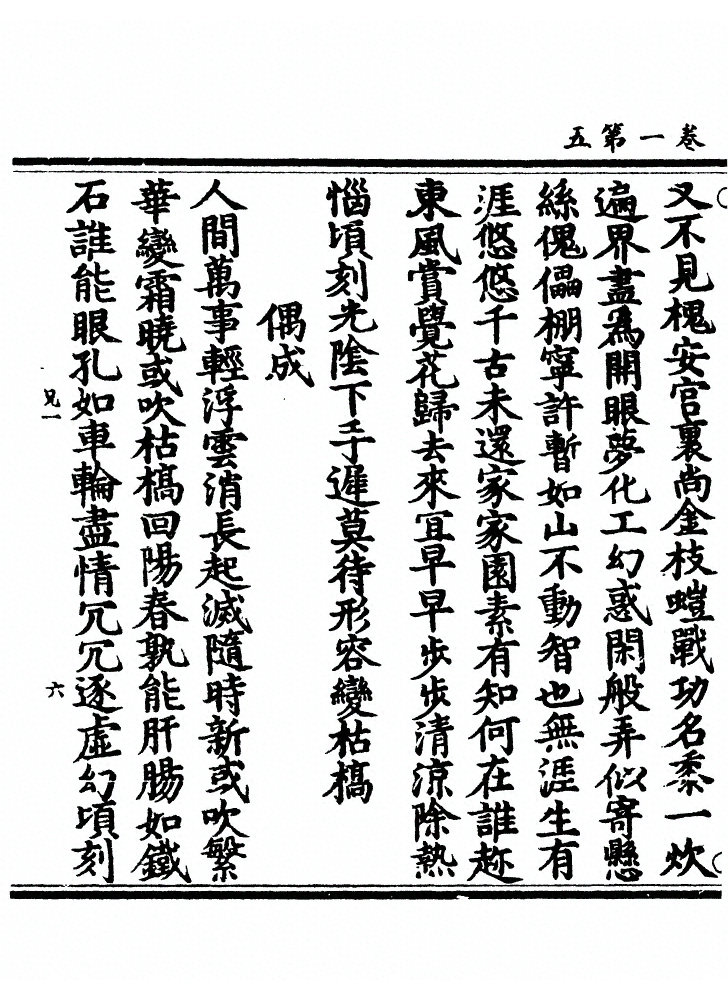 卷一第五
又不見槐安宮裏尚金枝螘戰功名黍一炊
遍界盡為開眼夢化工幻惑閑般弄似寄懸
絲傀儡棚寧許暫如山不動智也無涯生有
涯悠悠千古未還家家園素有知何在誰趂
東風賞覺花歸去來冝早早步步清涼除熱
惱頃刻光陰下手遲莫待形容變枯槁
偶成
人間萬事輕浮雲消長起滅隨時新或吹繁
華變霜曉或吹枯槁回陽春孰能肝腸如鐵
石誰能眼孔如車輪盡情冗冗逐虛幻頃刻
兄一
六